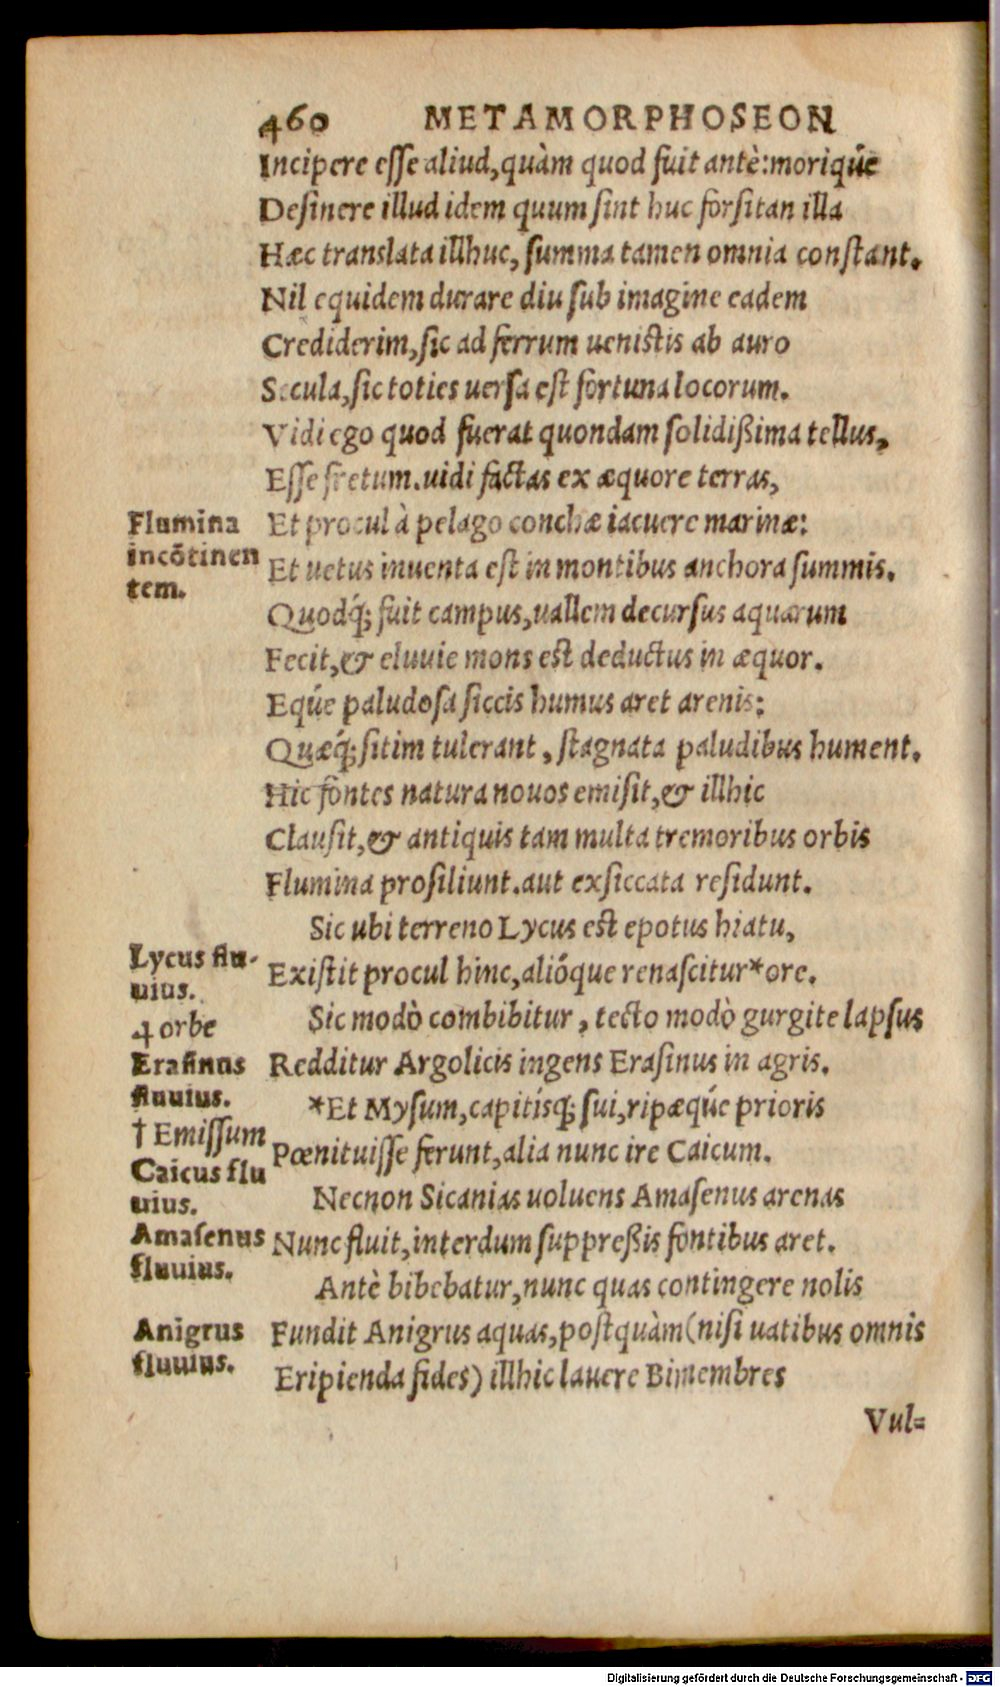 460 METAMORPHOSEON
Incipere esse aliud, quàm quod fuit antè: moriq́ue
Desinere illud idem quum sint huc forsitan illa
Hæc translata illhuc, summa tamen omnia constant.
Nil equidem durare diu sub imagine eadem
Crediderim, sic ad ferrum uenistis ab auro
Secula, sic toties uersa est fortuna locorum.
Vidi ego quod fuerat quondam solidißima tellus,
Esse fretum. uidi factas ex æquore terras,
Et procul à pelago conchæ iacuere marinæ:
Et uetus inuenta est in montibus anchora summis.
Quodq́; fuit campus, uallem decursus aquarum
Fecit, & eluuie mons est deductus in æquor.
Eq́ue paludosa siccis humus aret arenis:
Quæq́; sitim tulerant, stagnata paludibus hument.
Hic fontes natura nouos emisit, & illhic
Clausit, & antiquis tam multa tremoribus orbis
Flumina prosiliunt. aut exsiccata residunt.
Sic ubi terreno Lycus est epotus hiatu,
Existit procul hinc, alióque renascitur *ore.
Sic modò combibitur, tecto modò gurgite lapsus
Redditur Argolicis ingens Erasinus in agris.
*Et Mysum, capitísq; sui, ripæq́ue prioris
Pœnituisse ferunt, alia nunc ire Caicum.
Necnon Sicanias uoluens Amasenus arenas
Nunc fluit, interdum suppreßis fontibus aret.
Antè bibebatur, nunc quas contingere nolis
Fundit Anigrus aquas, postquàm (nisi uatibus omnis
Eripienda fides) illhic lauere Bimembres
Vul=
Flumina
incõtinen
tem.
Lycus flu-
uius.
4 orbe
Erasinus
fluuius.
† Emissum
Caicus flu
uius.
Amasenus
fluuius.
Anigrus
fluuius.
Digitalisierung gefördert durch die Deutsche Forschungsgemeinschaft - DFG